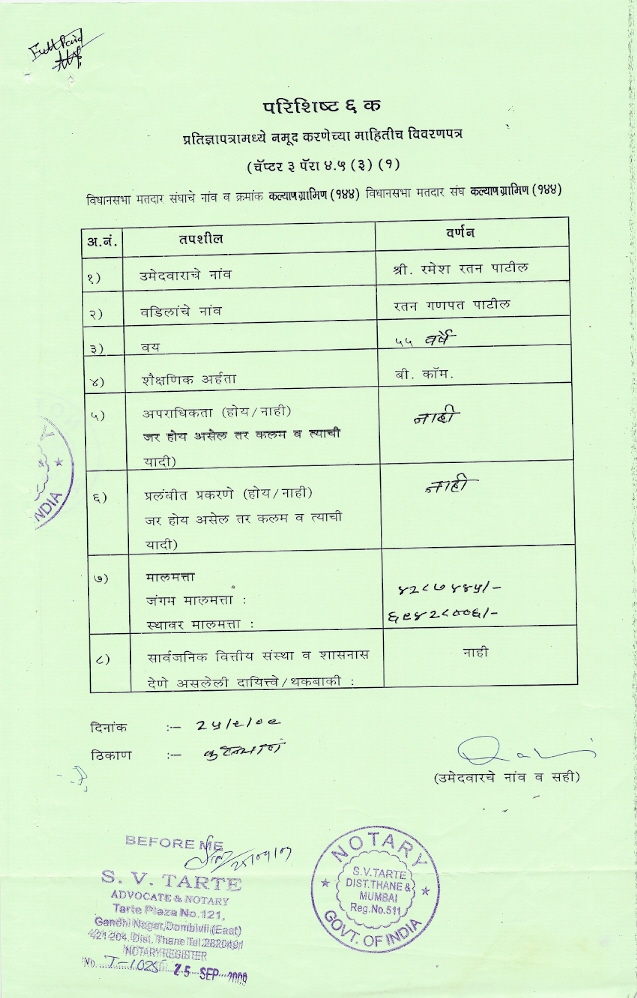 Full Paid
परिशिष्ट ६ क
प्रतिज्ञापत्रामध्ये नमूद करणेच्या माहितीच विवरणपत्र
(चॅप्टर ३ पॅरा ४.५ (३) (१)
विधानसभा मतदार संघाचे नांव व क्रमांक कल्याण ग्रामिण (१४४) विधानसभा मतदार संघ कल्याण ग्रामिण (१४४)
अ.नं. तपशील वर्णन
१) उमेदवाराचे नांव श्री. रमेश रतन पाटील
२) वडिलांचे नांव रतन गणपत पाटील
३) वय ५५ वर्षे
४) शैक्षणिक अर्हता बी. कॉम.
५) अपराधिकता (होय/नाही) नाही
जर होय असेल तर कलम व त्याची
यादी)
६) प्रलंबीत प्रकरणे (होय/नाही) नाही
जर होय असेल तर कलम व त्याची
यादी)
७) मालमत्ता
जंगम मालमत्ता : ४२८७४४५/-
स्थावर मालमत्ता : ६९४२८००६/-
८) सार्वजनिक वित्तीय संस्था व शासनास नाही
देणे असलेली दायित्त्वे/थकबाकी :
दिनांक :- २५/९/०९
ठिकाण :- कल्याण
(उमेदवारचे नांव व सही)
BEFORE ME
S. V. TARTE
ADVOCATE & NOTARY
Tarte Plaza No.121,
Gandhi Nagar, Dombivli (East)
421204, Dist. Thane Tel.
NOTARY REGISTER
No. I-1025 25 SEP 2009
NOTARY
S.V.TARTE
DIST.THANE &
MUMBAI
Reg.No.511
GOVT. OF INDIA
NDIA